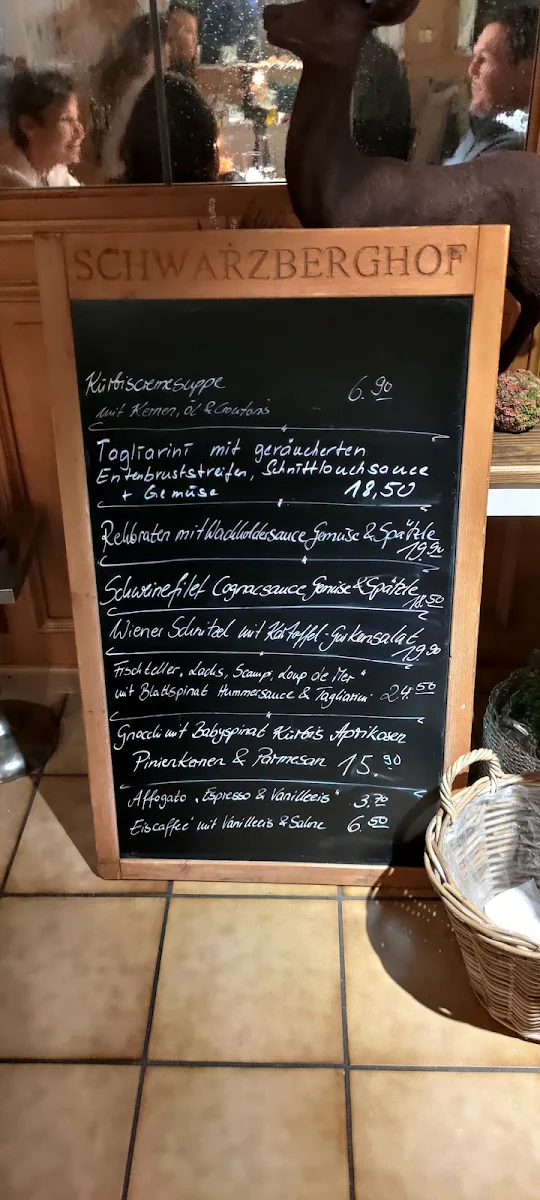 SCHWARZBERGHOF
Kürbiscremesuppe 6.90
mit Kernen, Öl & Croutons
Tagliarini mit geräucherten
Entenbruststreifen, Schnittlauchsauce
+ Gemüse 18,50
Rehbraten mit Wacholdersauce Gemüse & Spätzle
19,90
Schweinefilet Cognacsauce Gemüse & Spätzle
18.50
Wiener Schnitzel mit Kartoffel-Gurkensalat
19.90
Fischteller, Lachs, Scampi, Loup de Mer"
mit Blattspinat Hummersauce & Tagliarini 24.50
Gnocchi mit Babyspinat Kürbis Aprikosen
Pinienkernen & Parmesan 15.90
Affogato „Espresso & Vanilleeis" 3.70
Eiscaffee mit Vanilleeis & Sahne 6.50